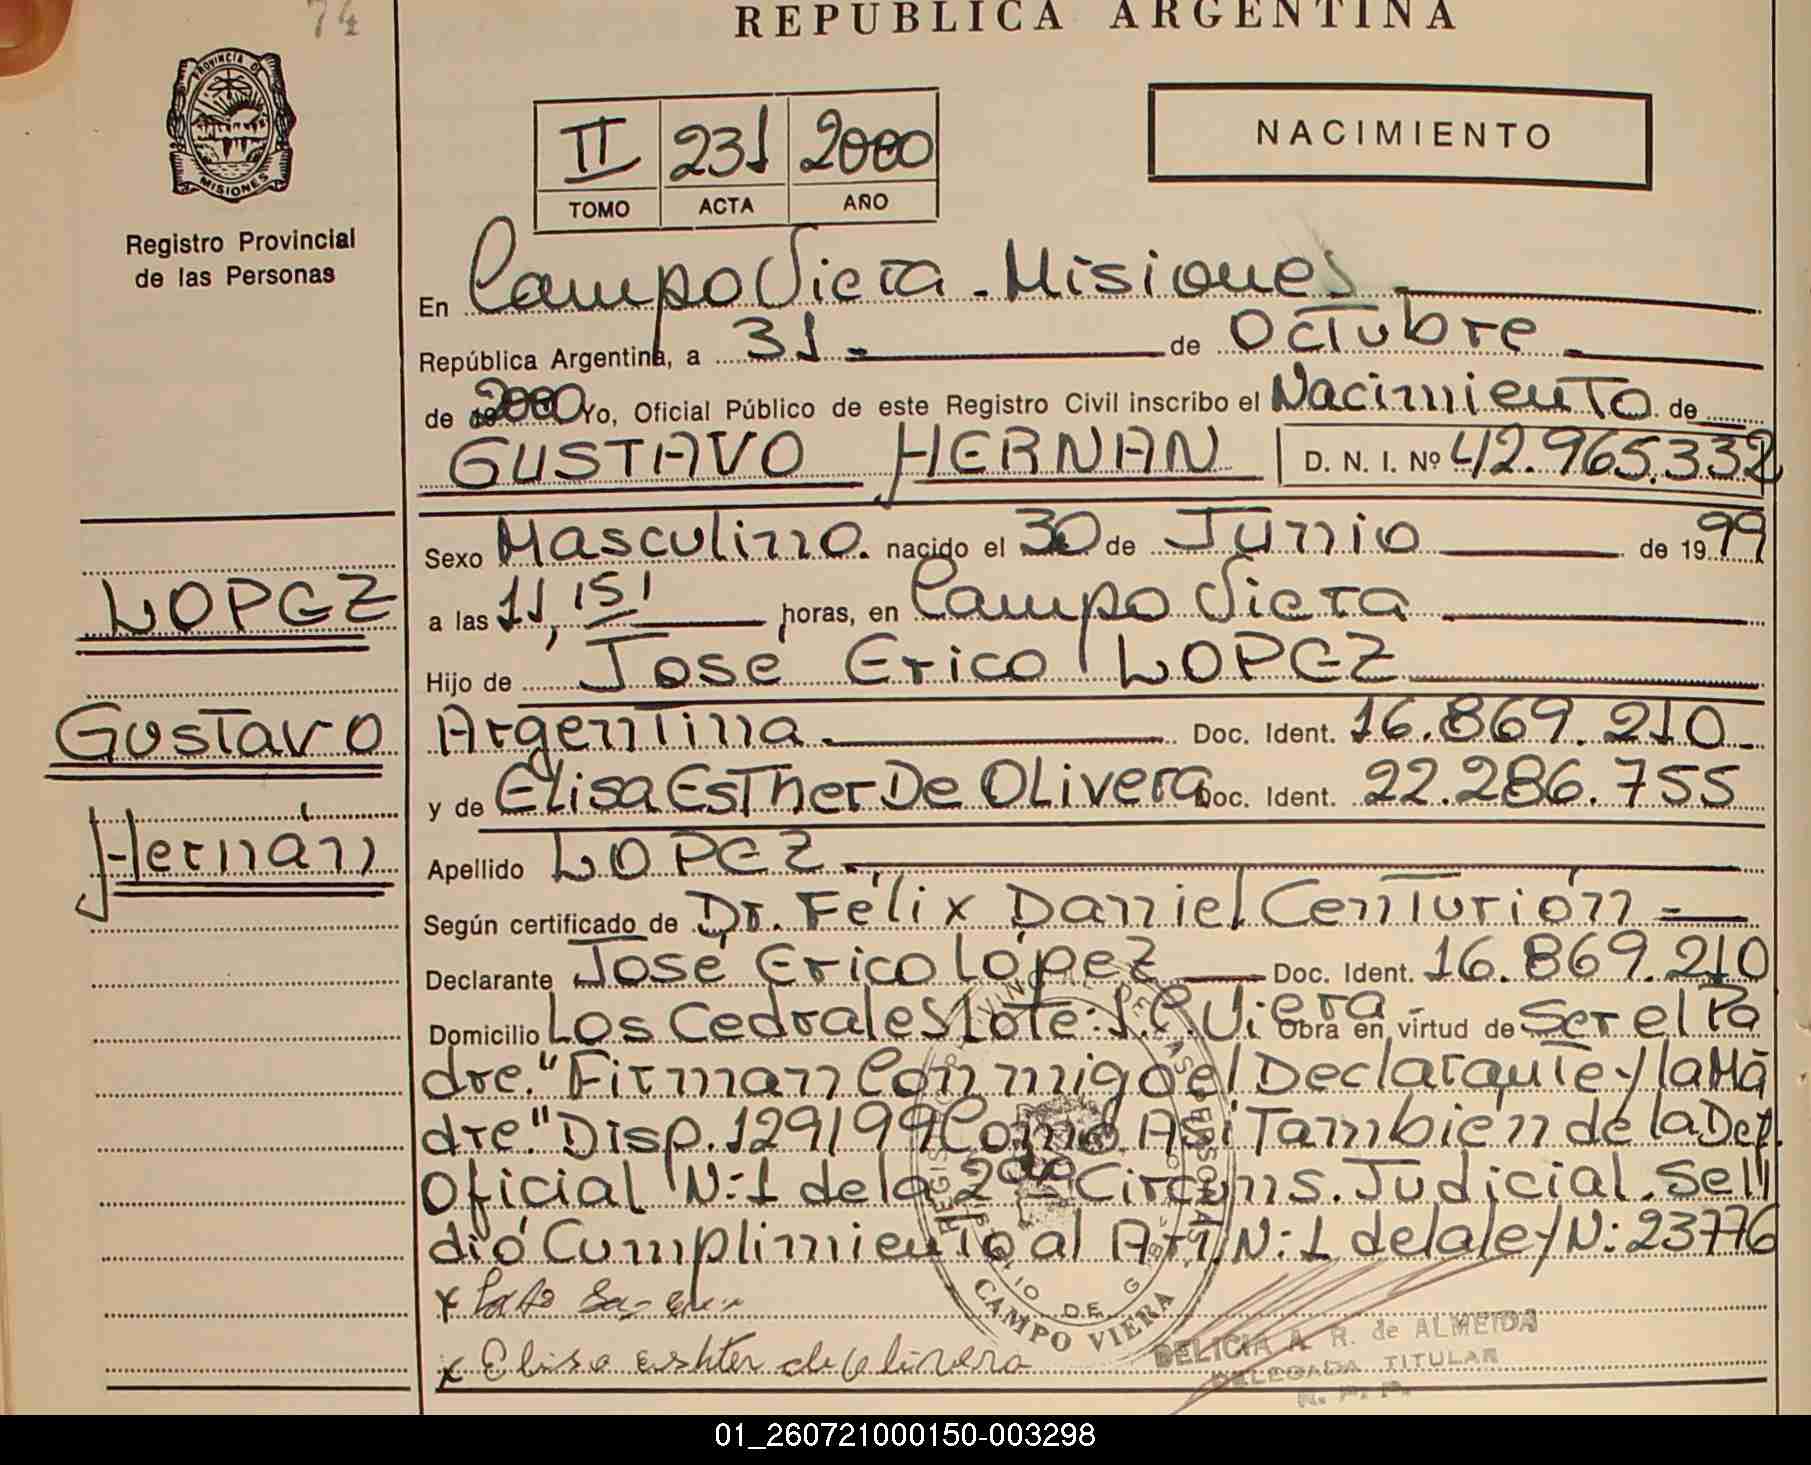 74
REPUBLICA ARGENTINA
PROVINCIA DE
MISIONES
Registro Provincial
de las Personas
II 231 2000
TOMO ACTA AÑO
NACIMIENTO
En Campo Viera - Misiones
República Argentina, a 31 de Octubre
de 2000 Yo, Oficial Público de este Registro Civil inscribo el Nacimiento de
GUSTAVO HERNAN D. N. I. Nº 42.965.332
Sexo Masculino. nacido el 30 de Junio de 1999
a las 11,15 horas, en Campo Viera
LOPEZ
Hijo de José Erico LOPEZ
Gustavo
Argentina Doc. Ident. 16.869.210
y de Elisa Esther De Olivera Doc. Ident. 22.286.755
Hernán
Apellido LOPEZ
Según certificado de Dr. Félix Daniel Centurión
Declarante José Erico López Doc. Ident. 16.869.210
Domicilio Los Cedrales Lote:1.C.Viera - Obra en virtud de Ser el Pa
dre." Firman Conmigo el Declarante y la Ma
dre." Disp. 129/99 Como Asi Tambien de la Def.
Oficial N:1 de la 2da Circuns. Judicial. Se
dió Cumplimiento al Art. N:1 de la ley N: 23776
x
x Elisa eshter de olivera
CAMPO VIERA
DELICIA A. R. de ALMEIDA
DELEGADA TITULAR
R. P. P.
01_260721000150-003298